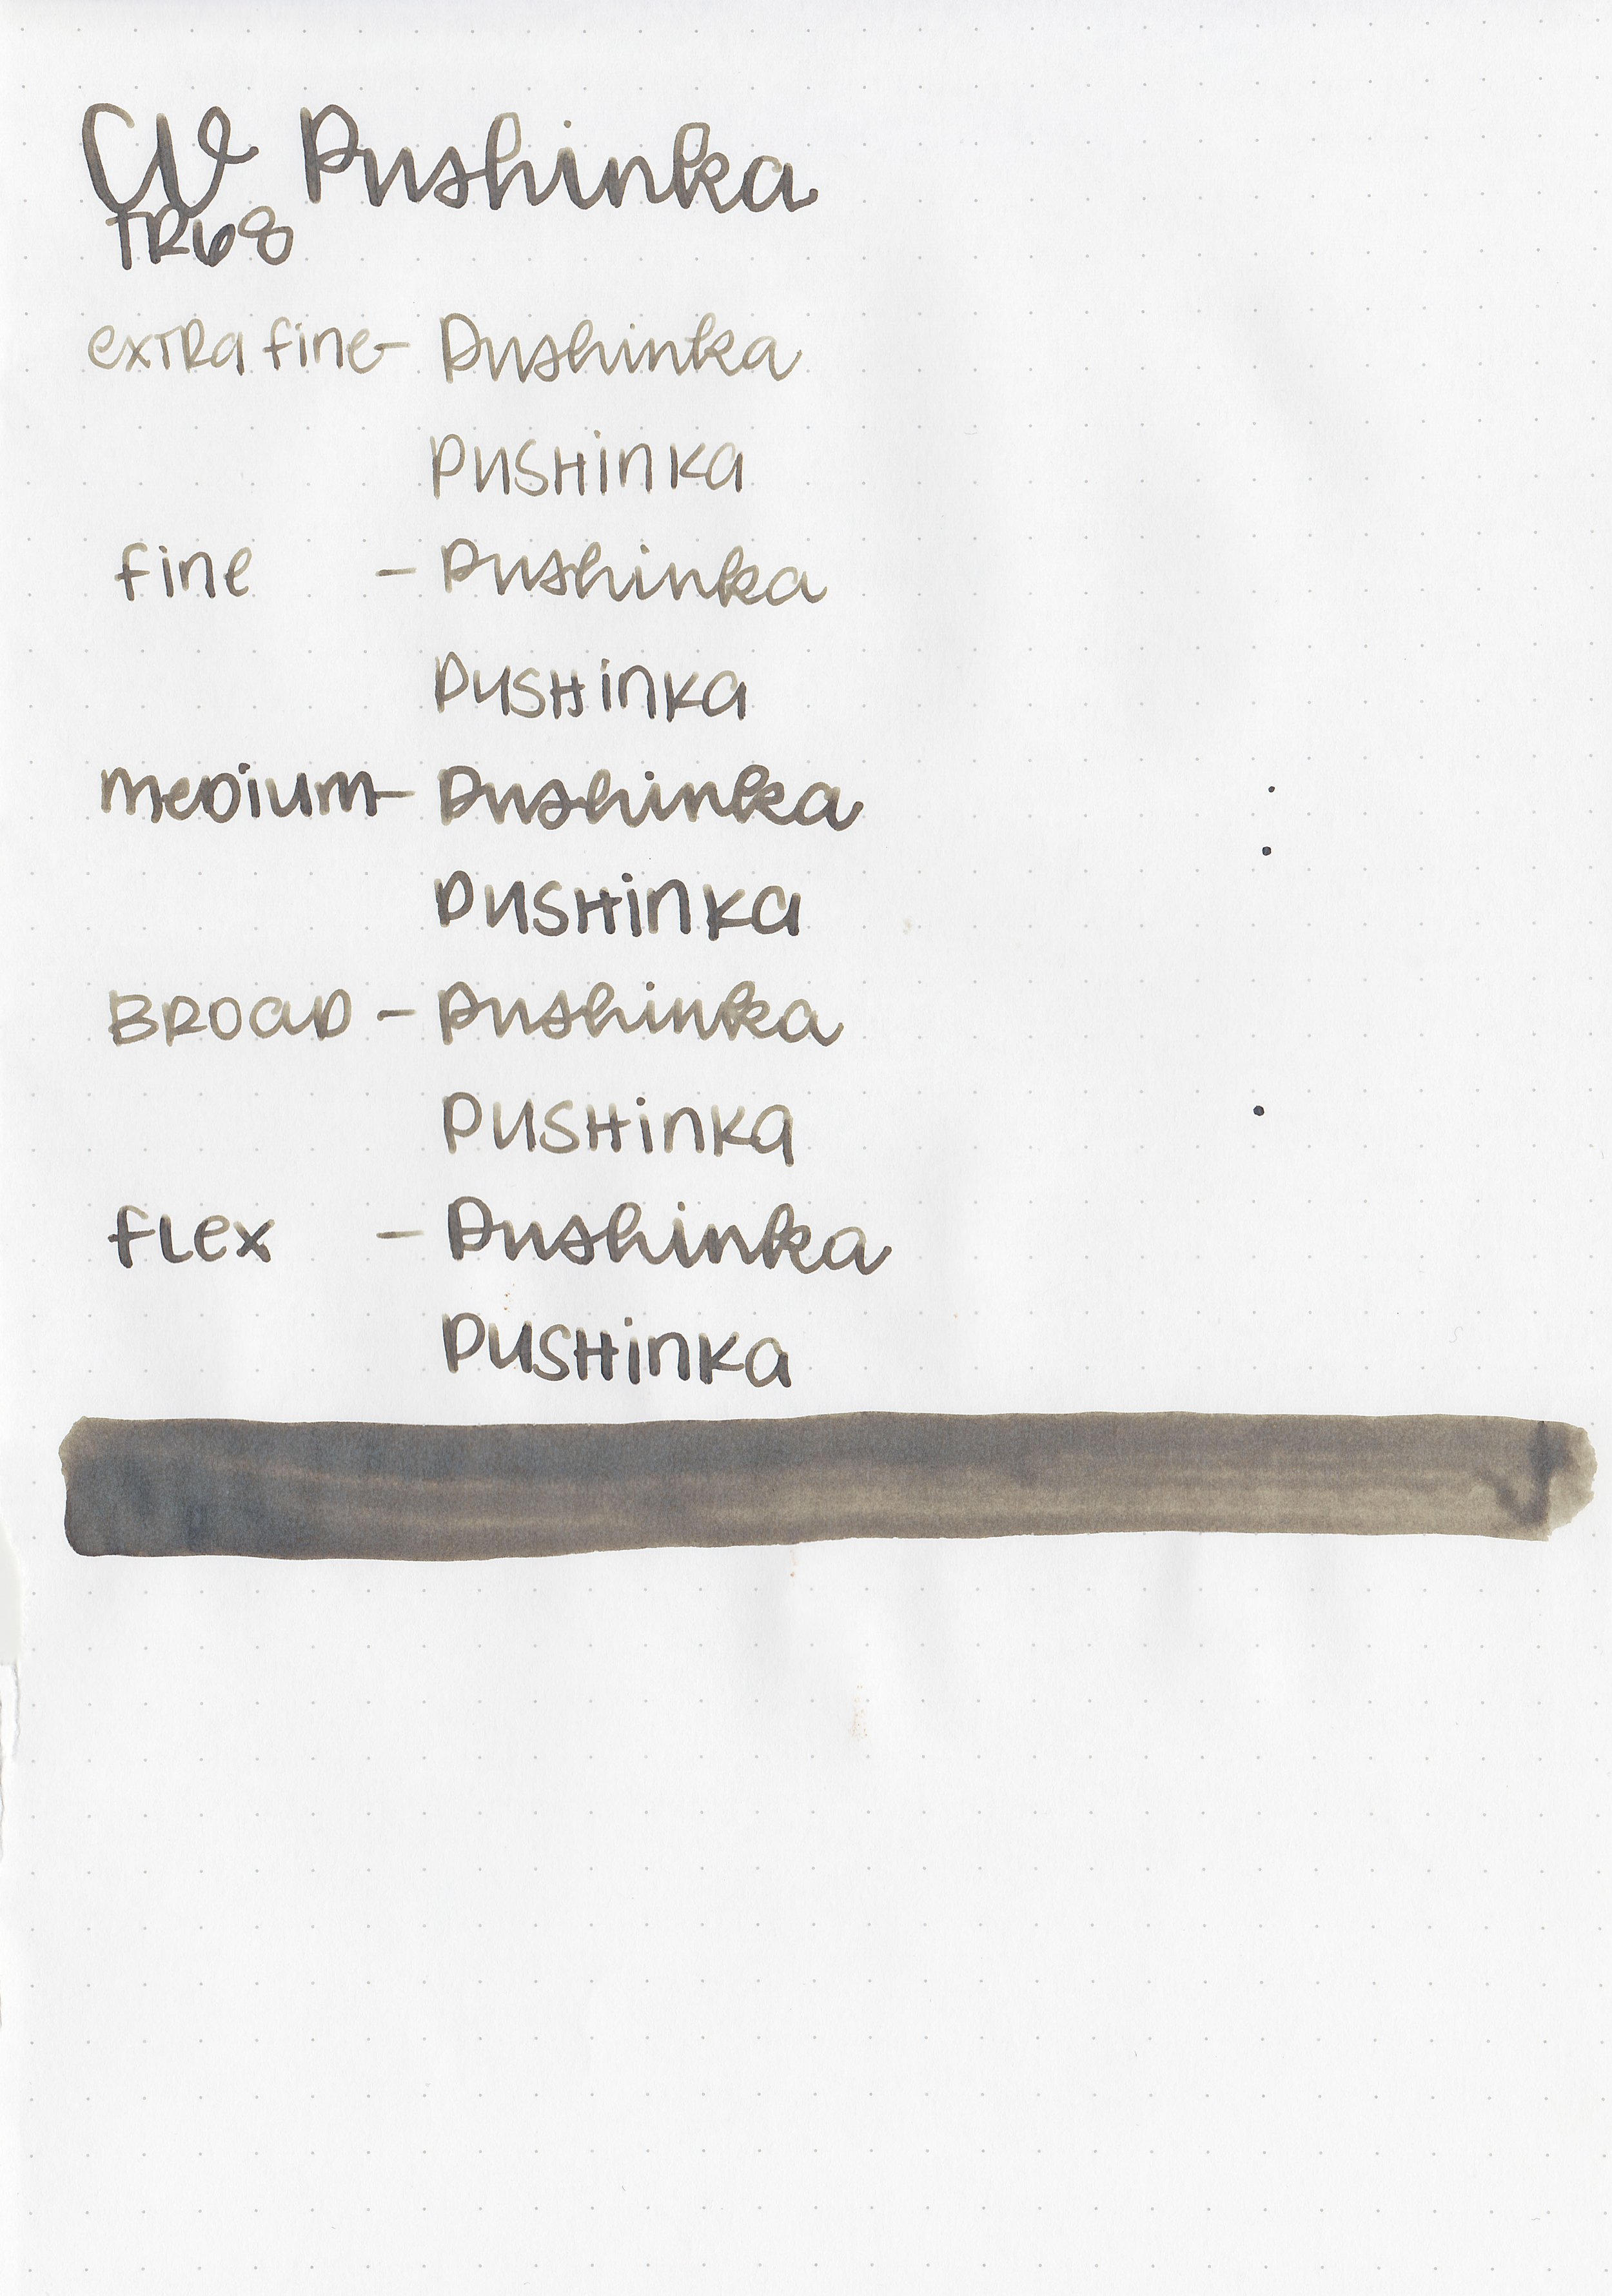 CV Pushinka
TR68
extra fine- Pushinka
PUSHinKa
fine - Pushinka
PUSHinKa
meDium- Pushinka
PUSHinKa
BROaD - Pushinka
PUSHinKa
fLex - Pushinka
PUSHinKa